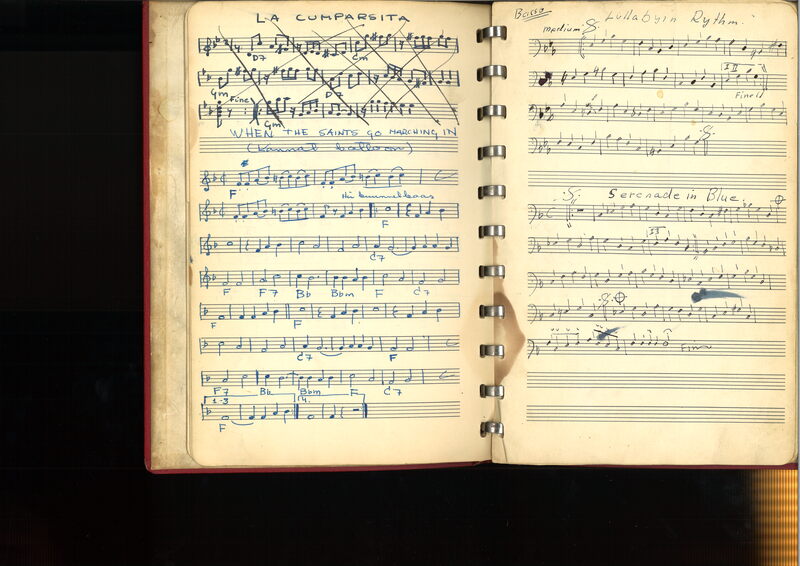 LA CUMPARSITA
D7 Cm
Gm D7
Fine
Gm
WHEN THE SAINTS GO MARCHING IN
F
F
C7
F F7 Bb Bbm F C7
F
C7 F
F7 Bb Bbm F C7
1-3 4.
F
Basso
Lullaby in Rythm.
medium
I II
Fine
Serenade in Blue.
II
Fine